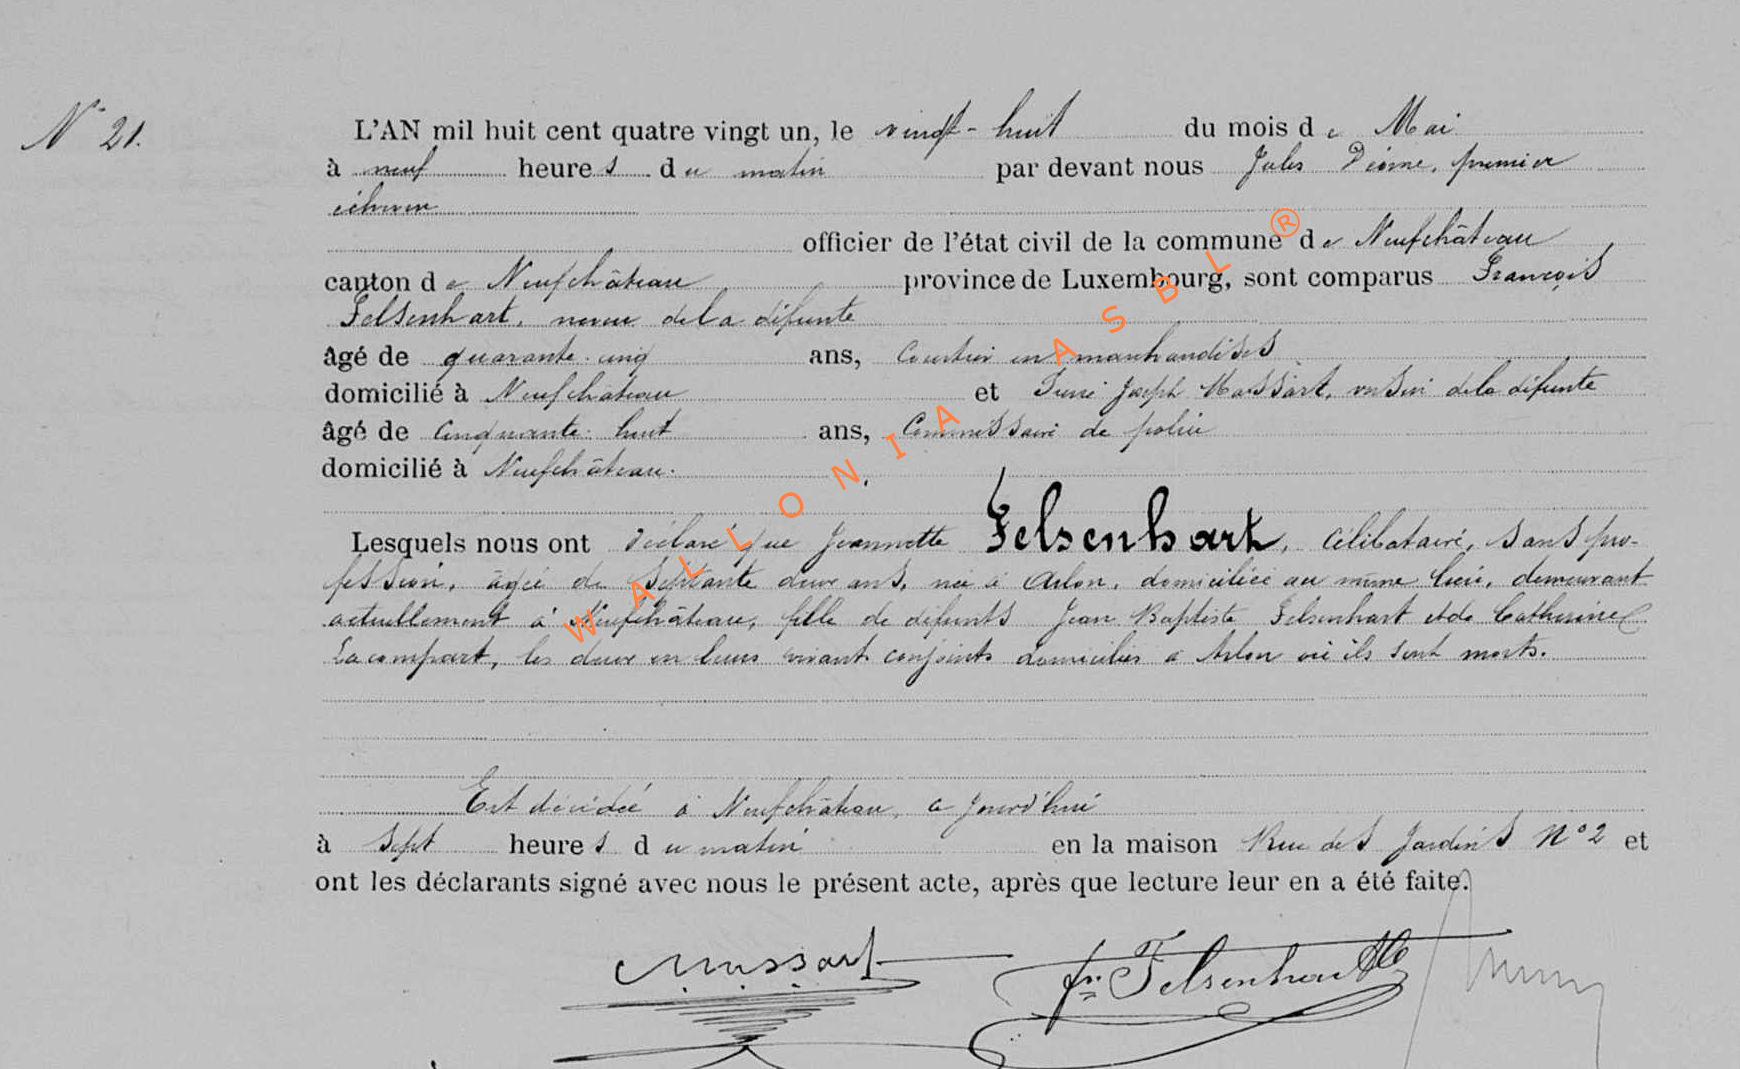 N° 21.
L'AN mil huit cent quatre vingt un, le vingt-huit du mois de Mai
à neuf heures du matin par devant nous Jules premier
échevin
officier de l'état civil de la commune de Neufchâteau
canton de Neufchâteau province de Luxembourg, sont comparus François
Felsenhart, neveu de la défunte
âgé de quarante-cinq ans, Courtier en marchandises
domicilié à Neufchâteau et Joseph Massart, voisin de la défunte
âgé de Cinquante-huit ans, Commissaire de police
domicilié à Neufchâteau.
Lesquels nous ont déclaré que Jeannette Felsenhart, célibataire, sans pro-
fession, âgée de septante deux ans, née à Arlon, domiciliée au même lieu, demeurant
actuellement à Neufchâteau, fille de défunts Jean Baptiste Felsenhart et de Catherine
Lacompart, les deux en leurs vivant conjoints domiciliés à Arlon où ils sont morts.
Est décédée à Neufchâteau, ce jourd'hui
à sept heures du matin en la maison Rue des Jardins N° 2 et
ont les déclarants signé avec nous le présent acte, après que lecture leur en a été faite.
Massart fr. Felsenhart
WALLONIA ASBL ®